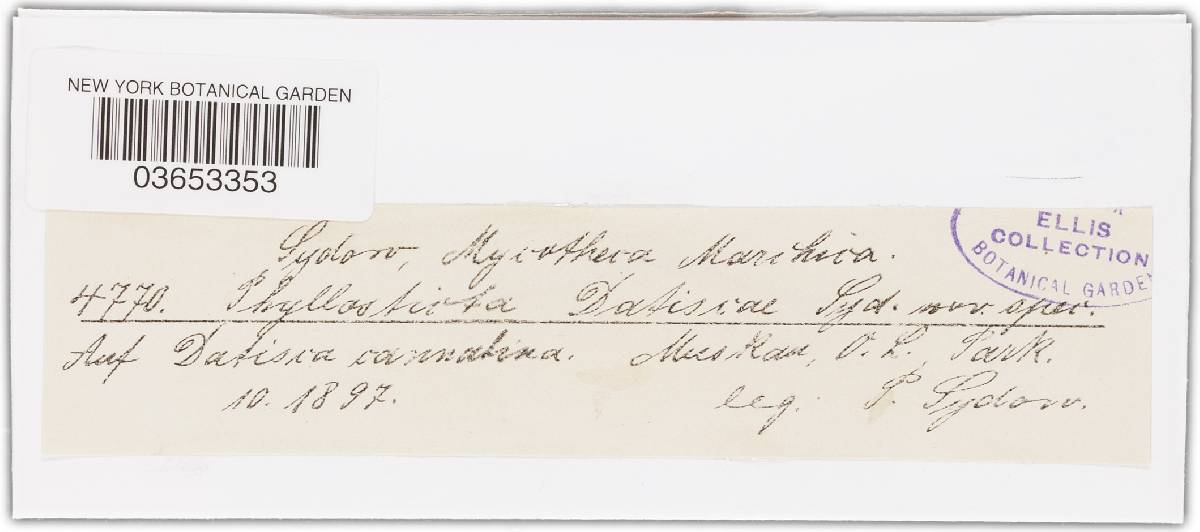 NEW YORK BOTANICAL GARDEN
03653353
ELLIS
COLLECTION
BOTANICAL GARDEN
Sydow, Mycotheca Marchica.
4770. Phyllosticta Datiscae Syd. nov. spec.
Auf Datisca cannabina. Muskau, O. L., Park.
10. 1897. leg. P. Sydow.